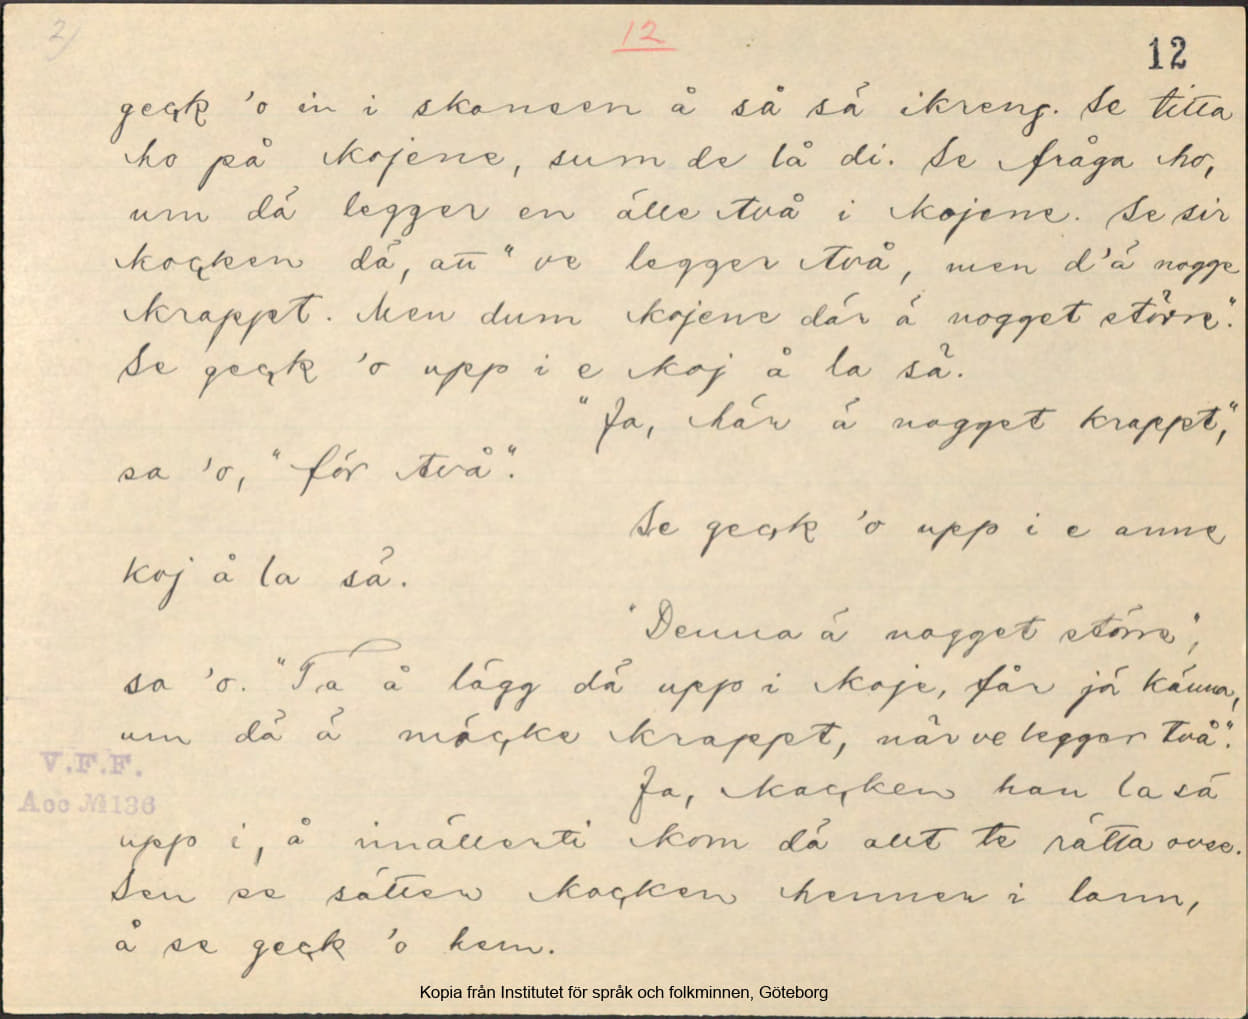 2)
12
12
geçk 'o in i skansen å så sá ikreng. Se titta
ho på kojene, sum de lå di. Se fråga ho,
um dá legger en álle två i kojene. Se sir
koçken dá, att "ve legger två, men d'á nogge
krappt. Men dum kojene dár á nogget större".
Se geçk 'o upp i e koj å la sá.
"Ja, hár á nogget krappt,"
sa 'o, "för två".
Se geçk 'o upp i e anne
koj å la sá.
"Denna á nogget större",
sa 'o. "Ta å lágg dá upp i koje, får já kánna,
um dá á möçke krappt, nár ve legger två".
Ja, koçken han la sá
upp i, å imállerti kom dá allt te rátta ovee.
Sen se sátter koçken henner i lann,
å se geçk 'o hem.
V.F.F.
Acc № 136
Kopia från Institutet för språk och folkminnen, Göteborg